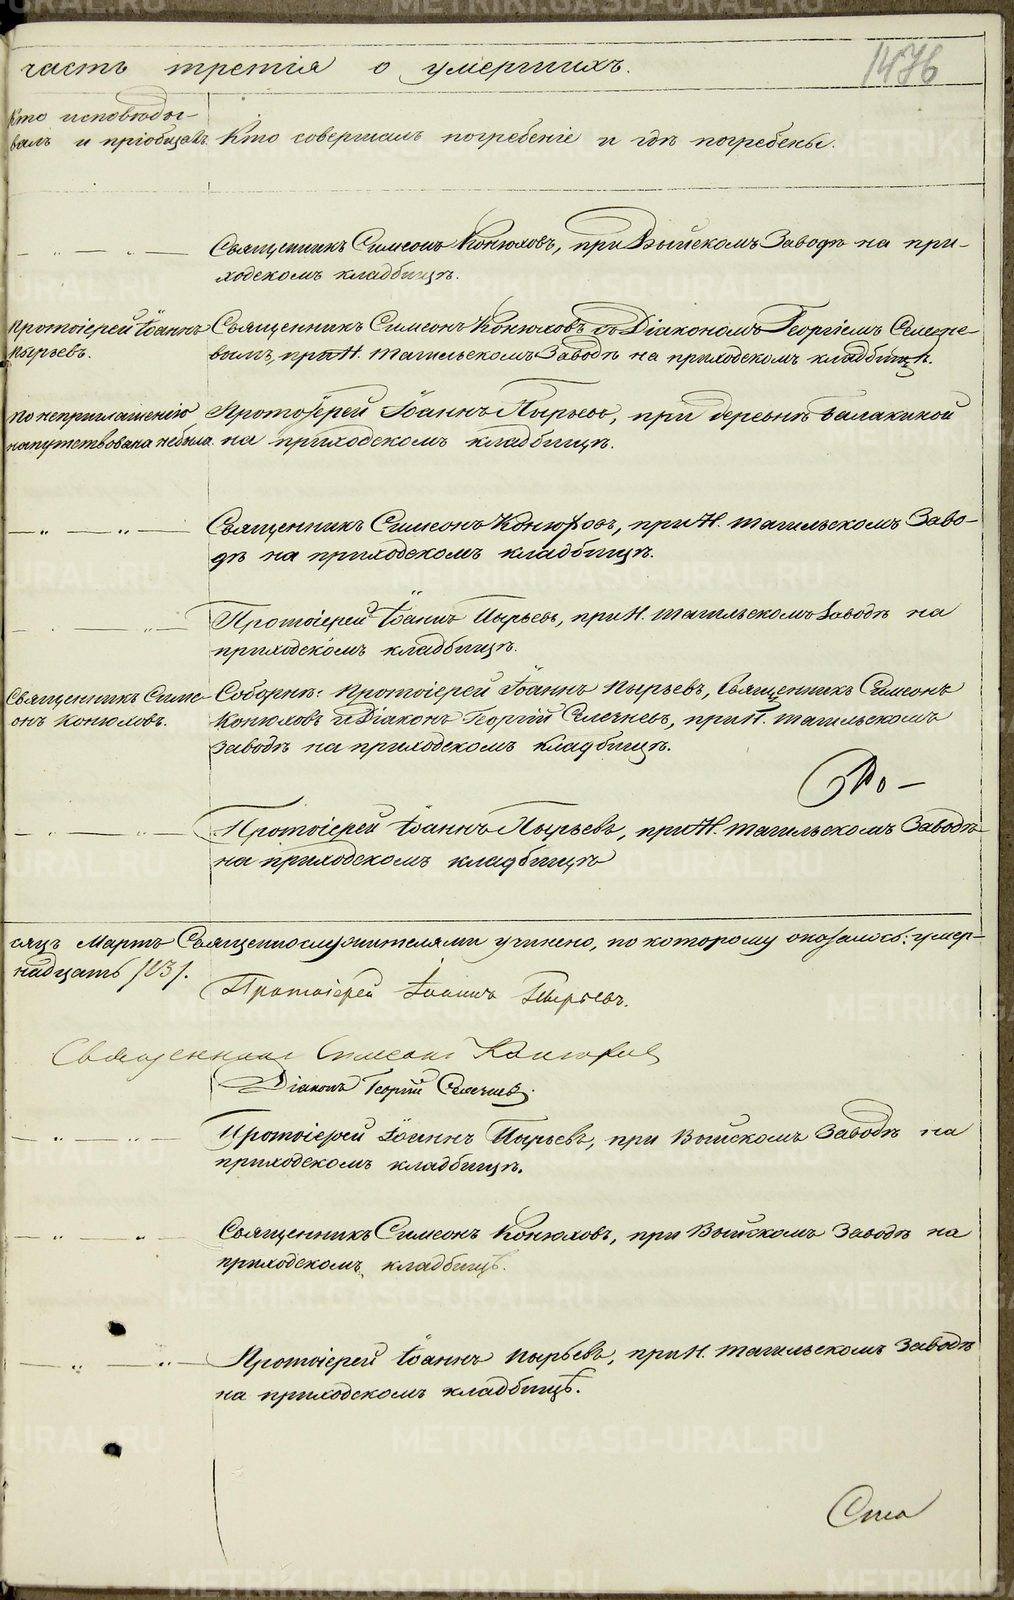 часть третія о умершихъ.
1476
Кто исповѣды-
валъ и пріобщалъ.
Кто совершалъ погребеніе и гдѣ погребены.
— „ — „ —
Священникъ Симеонъ Конюховъ, при Выйскомъ Заводѣ на при-
ходскомъ кладбищѣ.
Протоіерей Іоаннъ
Пырьевъ.
Священникъ Симеонъ Конюховъ съ Діакономъ Георгіемъ Селезне-
вымъ, при Н. Тагильскомъ Заводѣ на приходскомъ кладбищѣ.
По неприглашенію
напутствована не была
Протоіерей Іоаннъ Пырьевъ, при деревнѣ Балакиной
на приходскомъ кладбищѣ.
— „ — „ —
Священникъ Симеонъ Конюховъ, при Н. Тагильскомъ Заво-
дѣ на приходскомъ кладбищѣ.
— „ — „ —
Протоіерей Іоаннъ Пырьевъ, при Н. Тагильскомъ Заводѣ на
приходскомъ кладбищѣ.
Священникъ Симе-
онъ Конюховъ.
Соборнѣ: Протоіерей Іоаннъ Пырьевъ, Священникъ Симеонъ
Конюховъ и Діаконъ Георгій Селезневъ, при Н. Тагильскомъ
Заводѣ на приходскомъ кладбищѣ.
— „ — „ —
Протоіерей Іоаннъ Пырьевъ, при Н. Тагильскомъ Заводѣ
на приходскомъ кладбищѣ
сяцъ Мартъ Священнослужителями учинено, по которому оказалось: умер-
надцать /13/.
Протоіерей Іоаннъ Пырьевъ.
Священникъ Симеонъ Конюховъ
Діаконъ Георгій Селезневъ.
— „ — „ —
Протоіерей Іоаннъ Пырьевъ, при Выйскомъ Заводѣ на
приходскомъ кладбищѣ.
— „ — „
Священникъ Симеонъ Конюховъ, при Выйскомъ Заводѣ на
приходскомъ кладбищѣ.
— „ — „ —
Протоіерей Іоаннъ Пырьевъ, при Н. Тагильскомъ Заводѣ
на приходскомъ кладбищѣ.